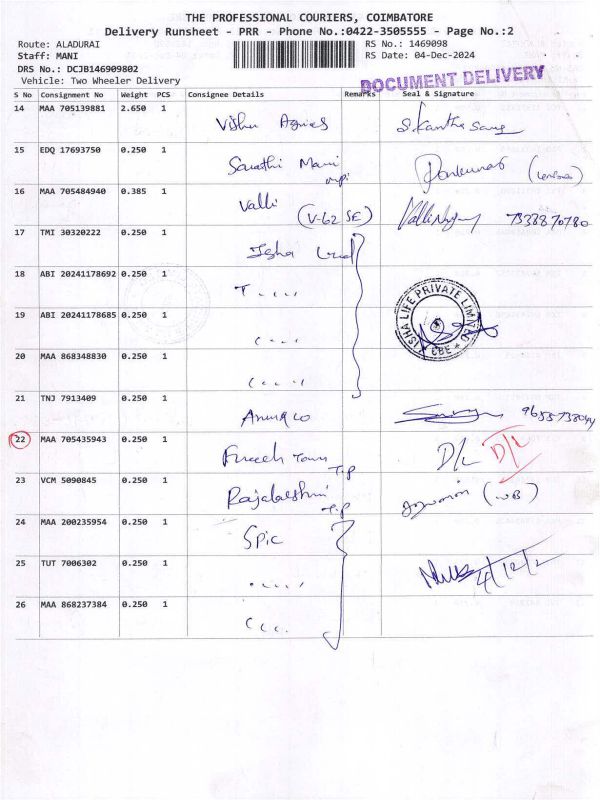 THE PROFESSIONAL COURIERS, COIMBATORE
Delivery Runsheet - PRR - Phone No.:0422-3505555 - Page No.:2
Route: ALADURAI RS No.: 1469098
Staff: MANI RS Date: 04-Dec-2024
DRS No.: DCJB146909802
Vehicle: Two Wheeler Delivery
DOCUMENT DELIVERY
S No Consignment No Weight PCS Consignee Details Remarks Seal & Signature
14 MAA 705139881 2.650 1
Vishnu Agnes
15 EDQ 17693750 0.250 1
Sarathi Mani
16 MAA 705484940 0.385 1
Valli (V-62 SE) 7338870780
17 TMI 30320222 0.250 1
Isha
18 ABI 20241178692 0.250 1
ISHA LIFE PRIVATE LIMITED
* CBE *
19 ABI 20241178685 0.250 1
20 MAA 868348830 0.250 1
21 TNJ 7913409 0.250 1
22 MAA 705435943 0.250 1
D/L D/L
T.P
23 VCM 5090845 0.250 1
Rajalakshmi T.P (WB)
24 MAA 200235954 0.250 1
Spic
25 TUT 7006302 0.250 1
4/12/2
26 MAA 868237384 0.250 1